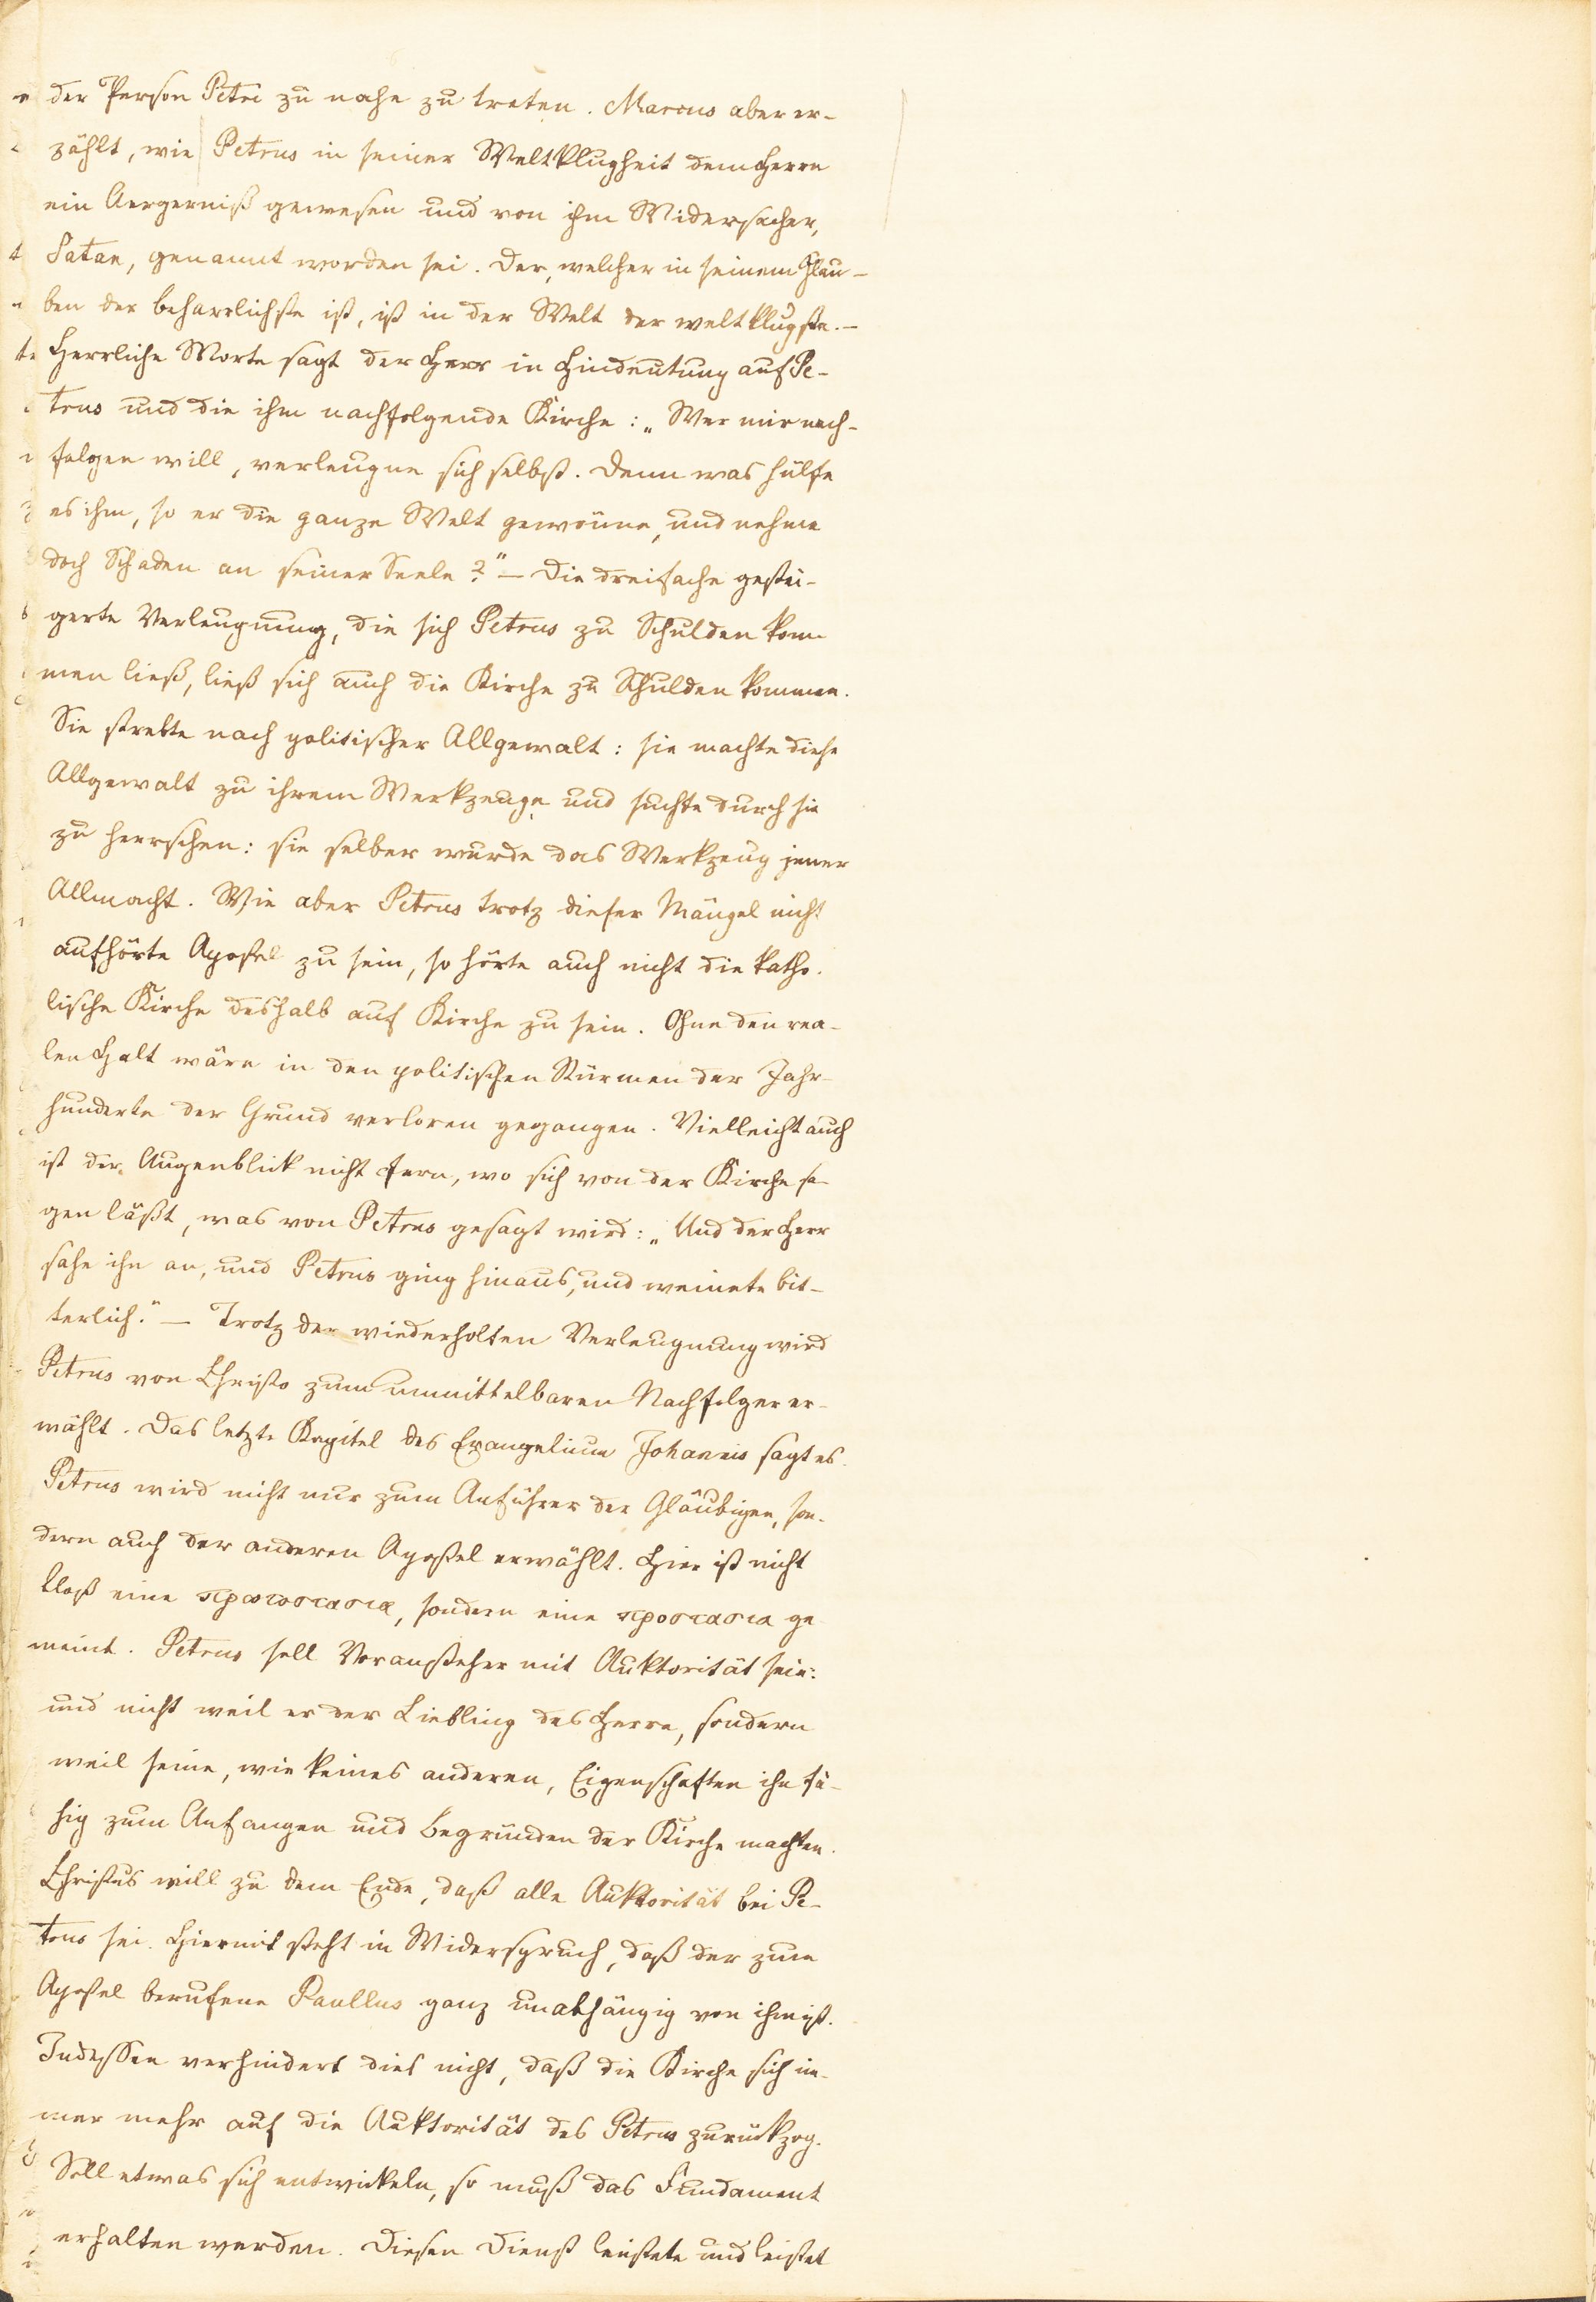 der Person Petri zu nahe zu treten. Marcus aber er-
zählt, wie Petrus in seiner Weltklugheit dem Herrn
ein Aergerniß gewesen und von ihm Widersacher,
Satan, genannt worden sei. Der, welcher in seinem Glau-
ben der beharrlichste ist, ist in der Welt der weltklugste. -
Herrliche Worte sagt der Herr in Hindeutung auf Pe-
trus und die ihm nachfolgende Kirche: „Wer mir nach-
folgen will, verleugne sich selbst. Denn was hülfe
es ihm, so er die ganze Welt gewönne, und nehme
doch Schaden an seiner Seele?" - Die dreifache gestei-
gerte Verleugnung, die sich Petrus zu Schulden kom-
men ließ, ließ sich auch die Kirche zu Schulden kommen.
Sie strebte nach politischer Allgewalt: sie machte diese
Allgewalt zu ihrem Werkzeuge und suchte durch sie
zu herrschen: sie selber wurde das Werkzeug jener
Allmacht. Wie aber Petrus trotz dieser Mängel nicht
aufhörte Apostel zu sein, so hörte auch nicht die katho-
lische Kirche deshalb auf Kirche zu sein. Ohne den rea-
len Halt wäre in den politischen Stürmen der Jahr-
hunderte der Grund verloren gegangen. Vielleicht auch
ist der Augenblick nicht fern, wo sich von der Kirche sa-
gen läßt, was von Petrus gesagt wird: „Und der Herr
sahe ihn an, und Petrus ging hinaus, und weinete bit-
terlich." - Trotz der wiederholten Verleugnung wird
Petrus von Christo zum unmittelbaren Nachfolger er-
wählt. Das letzte Kapitel des Evangelium Johannis sagt es.
Petrus wird nicht nur zum Anführer der Gläubigen, son-
dern auch der anderen Apostel erwählt. Hier ist nicht
bloß eine πρωτοστασια, sondern eine προστασια ge-
meint. Petrus soll Voransteher mit Auktorität sein:
und nicht weil er der Liebling des Herrn, sondern
weil seine, wie keines anderen, Eigenschaften ihn fä-
hig zum Anfangen und Begründen der Kirche machten.
Christus will zu dem Ende, daß alle Auktorität bei Pe-
trus sei. Hiermit steht in Widerspruch, daß der zum
Apostel berufene Paullus ganz unabhängig von ihm ist.
Indessen verhindert dies nicht, daß die Kirche sich im-
mer mehr auf die Auktorität des Petrus zurückzog.
Soll etwas sich entwickeln, so muß das Fundament
erhalten werden. Diesen Dienst leistete und leistet